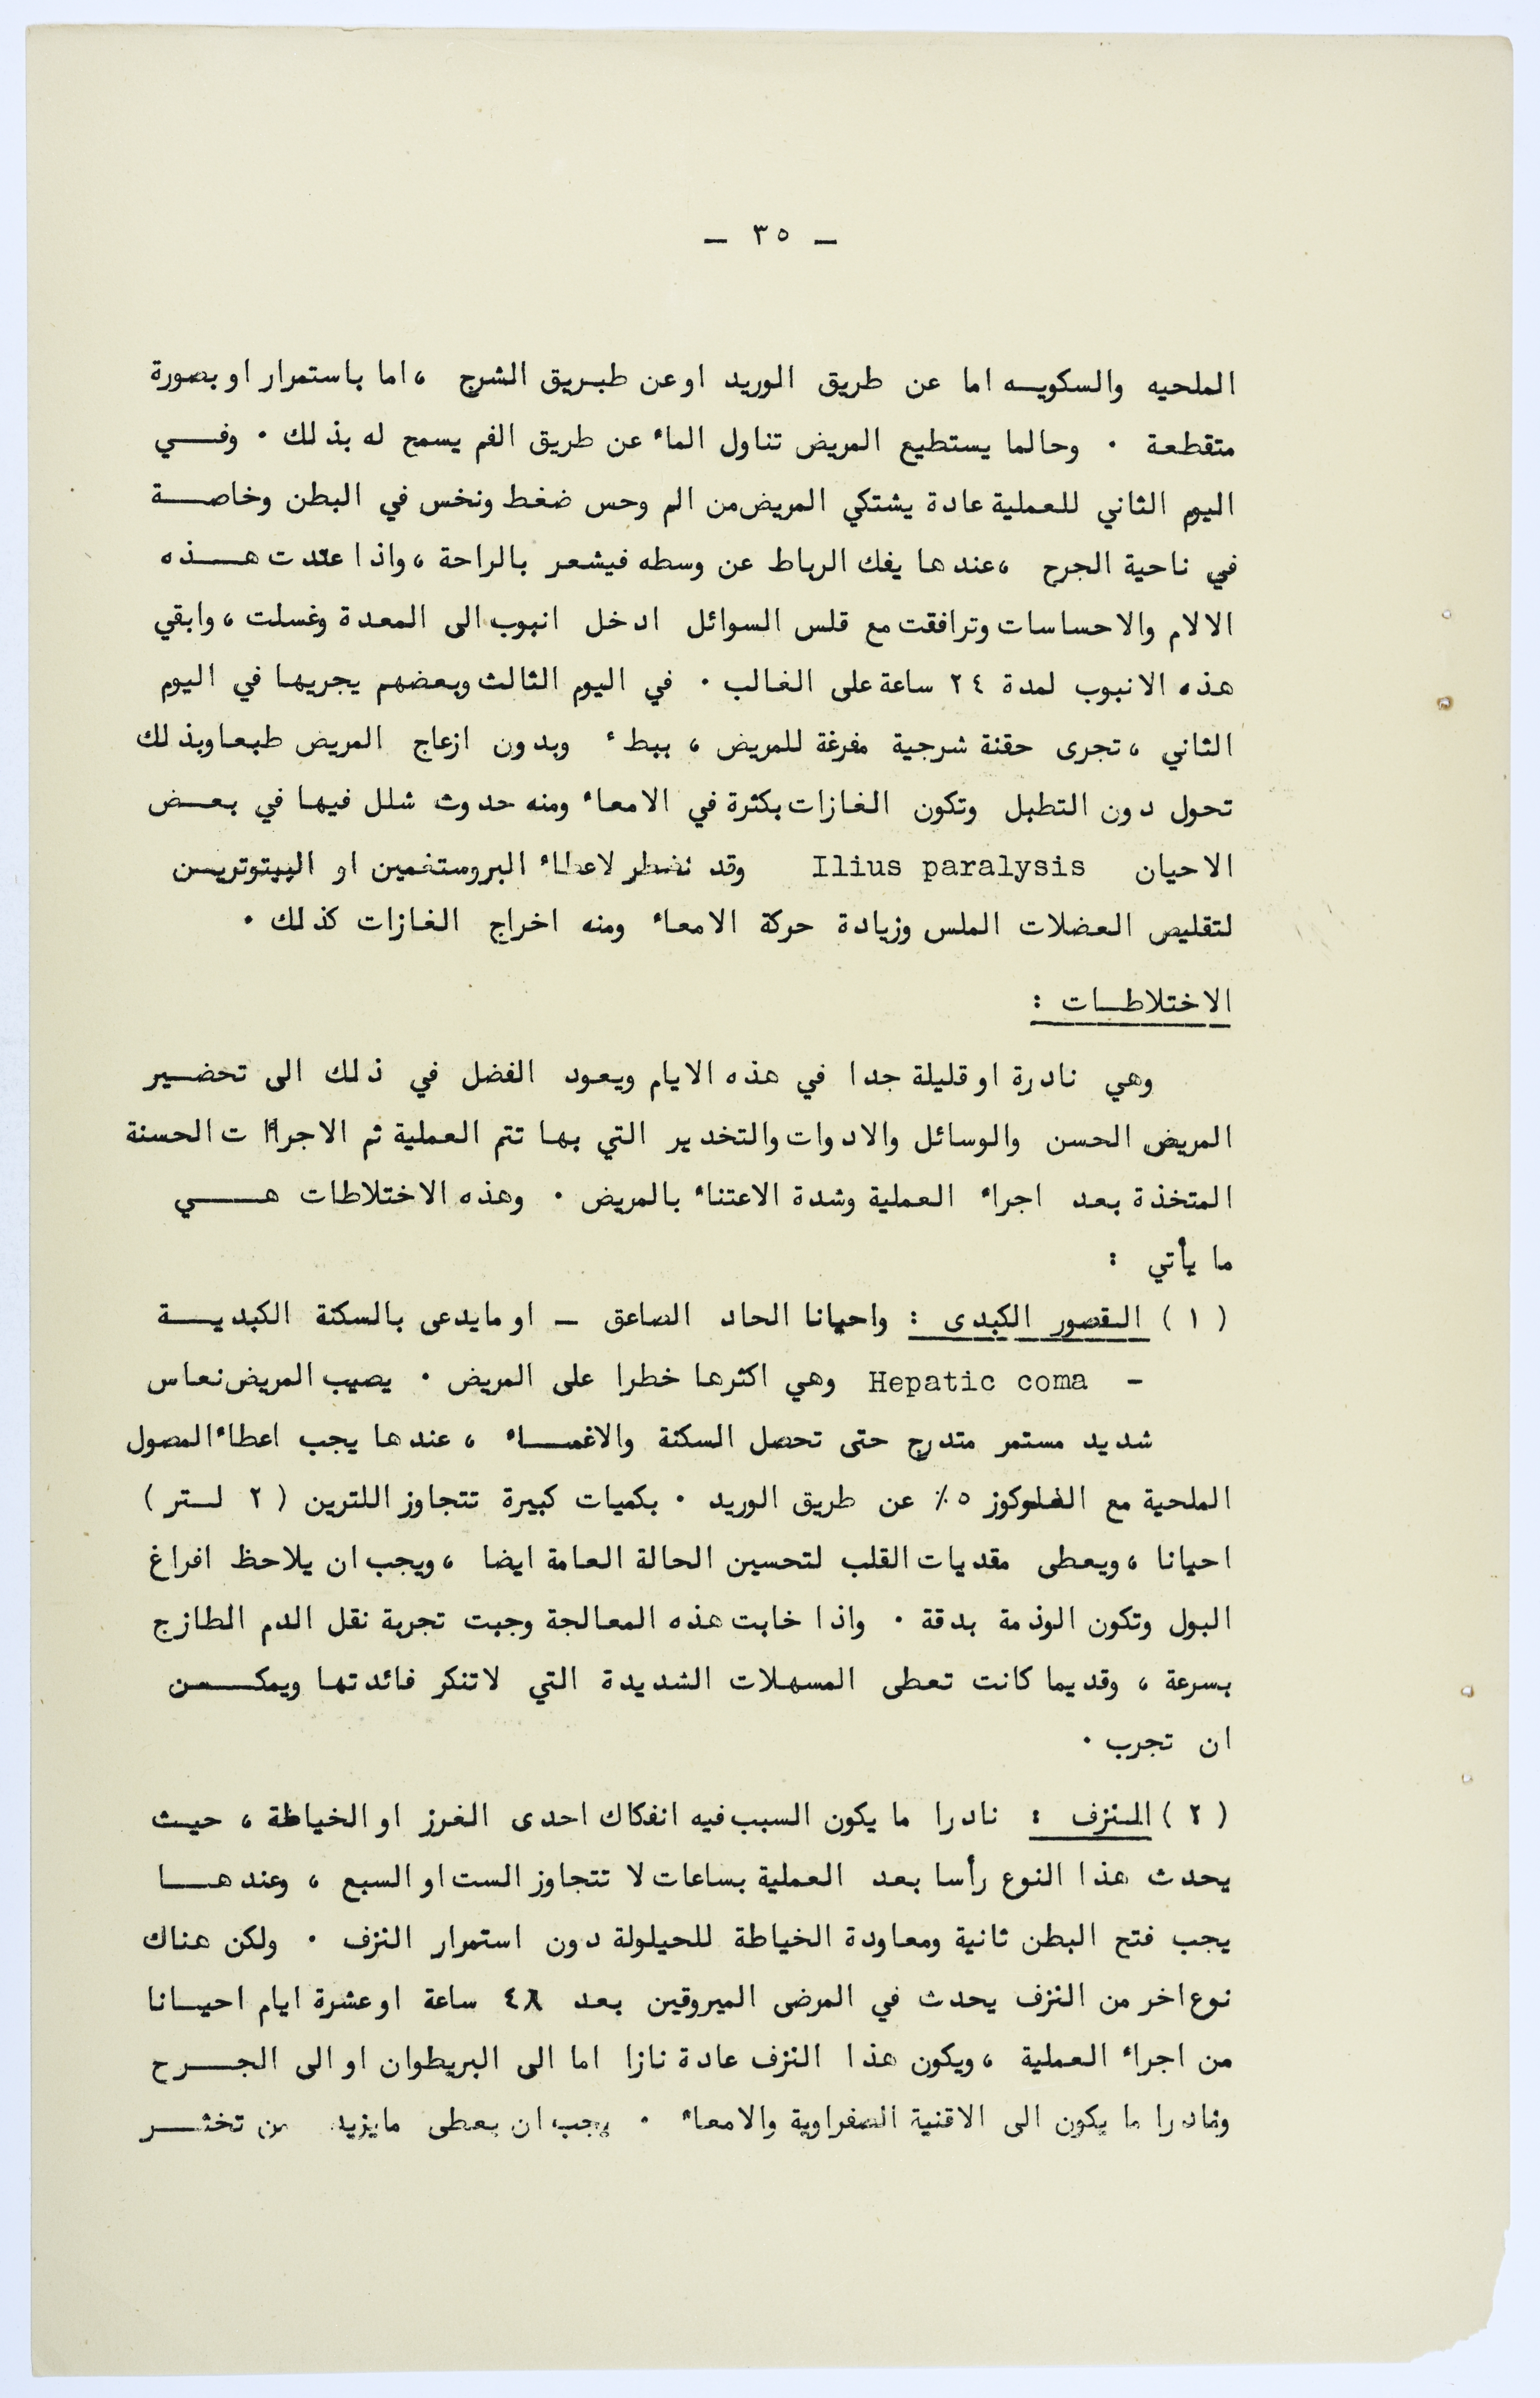 — ٣٥ —
الملحيه والسكويه اما عن طريق الوريد او عن طبريق الشرج ، اما باستمرار او بصورة
متقطعة ٠ وحالما يستطيع المريض تناول الماء عن طريق الفم يسمح له بذلك ٠ وفي
اليوم الثاني للعملية عادة يشتكي المريض من الم وحس ضغط ونخس في البطن وخاصة
في ناحية الجرح ، عندها يفك الرباط عن وسطه فيشعر بالراحة ، واذا عندت هذه
الالام والاحساسات وترافقت مع قلس السوائل ادخل انبوب الى المعدة وغسلت ، وابقي
هذه الانبوب لمدة ٢٤ ساعة على الغالب ٠ في اليوم الثالث وبعضهم يجريها في اليوم
الثاني ، تجرى حقنة شرجية مفرغة للمريض ، ببطء وبدون ازعاج المريض طبعا وبذلك
تحول دون التطبل وتكون الغازات بكثرة في الامعاء ومنه حدوث شلل فيها في بعض
الاحيان Ilius paralysis وقد نضطر لاعطاء البروستغمين او البيتوترين
لتقليص العضلات الملس وزيادة حركة الامعاء ومنه اخراج الغازات كذلك ٠
الاختلاطات :
وهي نادرة او قليلة جدا في هذه الايام ويعود الفضل في ذلك الى تحضير
المريض الحسن والوسائل والادوات والتخدير التي بها تتم العملية ثم الاجراءات الحسنة
المتخذة بعد اجراء العملية وشدة الاعتناء بالمريض ٠ وهذه الاختلاطات هي
ما يأتي :
( ١ ) القصور الكبدى : واحيانا الحاد الصاعق — او مايدعى بالسكتة الكبدية
- Hepatic coma وهي اكثرها خطرا على المريض ٠ يصيب المريض نعاس
شديد مستمر متدرج حتى تحصل السكتة والاغماء ، عندها يجب اعطاء المصول
الملحية مع الغلوكوز ٥٪ عن طريق الوريد ٠ بكميات كبيرة تتجاوز اللترين ( ٢ لتر )
احيانا ، ويعطى مقديات القلب لتحسين الحالة العامة ايضا ، ويجب ان يلاحظ افراغ
البول وتكون الوذمة بدقة ٠ واذا خابت هذه المعالجة وجبت تجربة نقل الدم الطازج
بسرعة ، وقديما كانت تعطى المسهلات الشديدة التي لاتنكر فائدتها ويمكن
ان تجرب ٠
( ٢ ) النزف : نادرا ما يكون السبب فيه انفكاك احدى الغرز او الخياطة ، حيث
يحدث هذا النوع رأسا بعد العملية بساعات لا تتجاوز الست او السبع ، وعندها
يجب فتح البطن ثانية ومعاودة الخياطة للحيلولة دون استمرار النزف ٠ ولكن هناك
نوع اخر من النزف يحدث في المرضى الميروقين بعد ٤٨ ساعة او عشرة ايام احيانا
من اجراء العملية ، ويكون هذا النزف عادة نازا اما الى البريطوان او الى الجرح
ونادرا ما يكون الى الاقنية الصفراوية والامعاء ٠ يجب ان يعطى مايزيد من تخثر